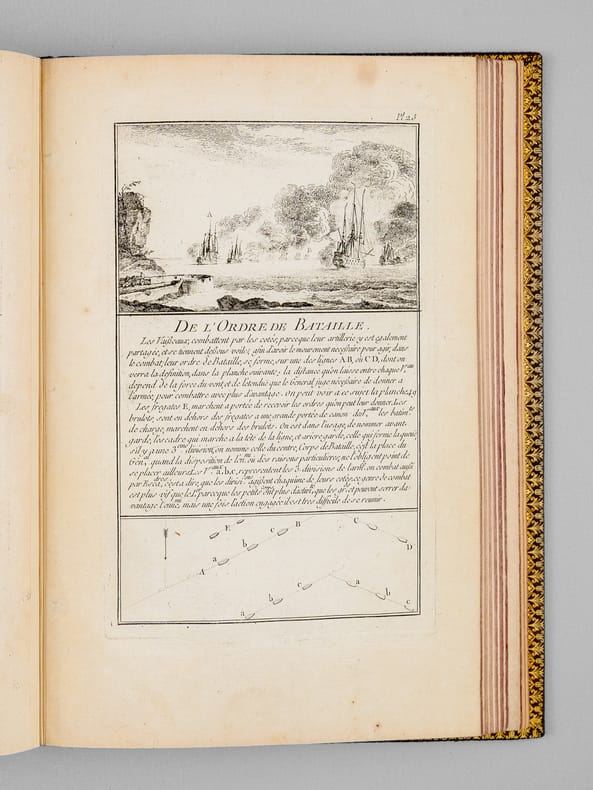 Pl 25
DE L'ORDRE DE BATAILLE.
Les Vaisseaux, combattent par les cotés, parceque leur artillerie y est egalement
partagée, et se tiennent dessous voiles, afin d'avoir le mouvement necessaire pour agir, dans
le combat, leur ordre de Bataille, se forme, sur une des lignes AB, ou CD, dont on
verra la definition, dans la planche suivante; la distance qu'on laisse entre chaque V.eau
depend de la force du vent, et de letendue que le General juge necessaire de donner a
l'armée, pour combattre avec plus d'avantage. On peut voir a ce sujet la planche 24
Les fregates E, marchent a portée de recevoir les ordres qu'on peut leur donner. Les
brulots, sont en dehors des fregates a une grande portée de canon des V.aux les batim.ts
de charge, marchent en dehors des brulots. On est dans l'usage, de nommer avant
garde, l'escadre qui marche a la tête de la ligne, et arrieregarde, celle qui forme la queüe
s'il y a une 3.eme division, on nomme celle du centre, Corps de Bataille, c'est la place du
Gén.al quand la disposition de l'en.mi ou des raisons particulieres, ne l'obligent point de
se placer ailleurs. Les V.aux a, b, c, representent les 3. divisions de l'arm. on combat aussi
par Esc.dres c'est a dire, que les divis.ons agissent chaqu'une de leurs cotés, ce genre de combat
est plus vif que le 1.er parceque les petits ont plus d'activ.té que les gr.ds et peuvent serrer da-
vantage l'ennemi, mais une fois l'action engagée il est tres difficile de se reunir.
E B C
c
b D
a
A c b
b c
a